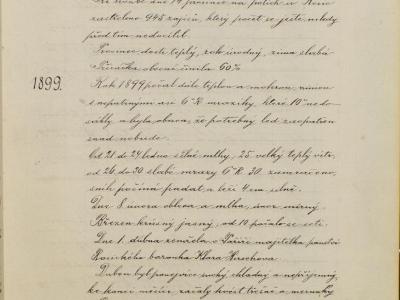 dne 14 prosince na polích v Kosu
zastřeleno 945 zajíců, který počet se ještě nikdy
před tím nedocílil.
Prosinec dosti teplý, rok úrodný, zima slabá
Přirážka obecní činila 60%
1899.
Rok 1899 počal dosti teplou a mokrou zimou
s nepatrnými asi 6°R mrazíky, které 10° nedo-
sáhly a byla obava, že potřebný led zaopatřen
snad nebude.
Od 21 do 24 ledna silné mlhy, 25 velký teplý vítr,
od 26 do 30 slabé mrazy 6°R 30 zamrzlo
sníh počíná padat a leží 4 cm silně.
Dne 8 února obleva a mlha, únor mírný.
Březen krásný jasný, od 10 počalo se seti.
Dne 1. dubna zemřela v Paříži majitelka panství
Rosického baronka Klara Hirschova
Duben byl ponejvíce suchý chladný a nepříjemný,
ke konci měsíce začaly kvést třešně a meruňky